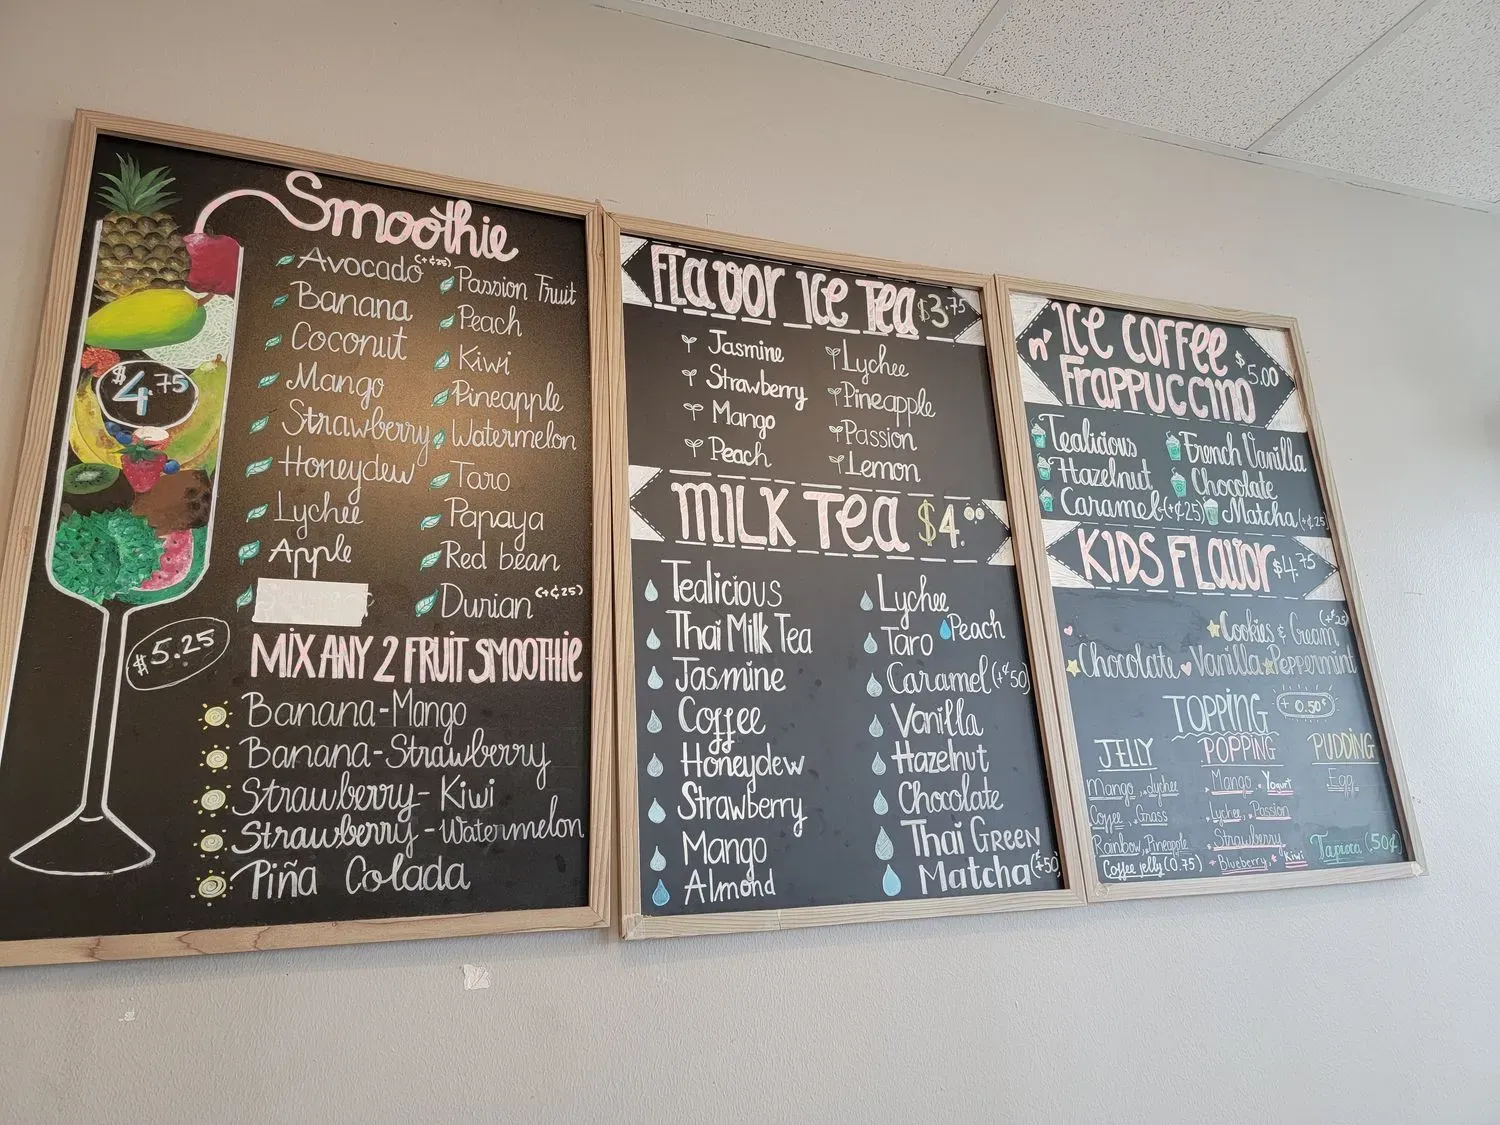 Smoothie
$4.75
Avocado (+¢25)
Banana
Coconut
Mango
Strawberry
Honeydew
Lychee
Apple
Passion Fruit
Peach
Kiwi
Pineapple
Watermelon
Taro
Papaya
Red bean
Durian (+¢25)
$5.25
MIX ANY 2 FRUIT SMOOTHIE
Banana-Mango
Banana-Strawberry
Strawberry-Kiwi
Strawberry-Watermelon
Piña Colada
Flavor Ice Tea $3.75
Jasmine
Strawberry
Mango
Peach
Lychee
Pineapple
Passion
Lemon
MILK Tea $4.00
Tealicious
Thai Milk Tea
Jasmine
Coffee
Honeydew
Strawberry
Mango
Almond
Lychee
Taro Peach
Caramel (+¢50)
Vanilla
Hazelnut
Chocolate
Thai GREEN
Matcha (+50)
ICE COFFEE
n' FRAPPUCCINO $5.00
Tealicious
Hazelnut
Caramel (+¢25)
French Vanilla
Chocolate
Matcha (+¢25)
KIDS FLAVOR $4.75
Cookies & Cream
Chocolate Vanilla Peppermint
TOPPING + 0.50¢
JELLY
Mango, Lychee
Coffee, Grass
Rainbow, Pineapple
Coffee jelly (0.75)
POPPING
Mango Yogurt
Lychee, Passion
Strawberry
Blueberry Kiwi
PUDDING
Egg
Tapioca (50¢)